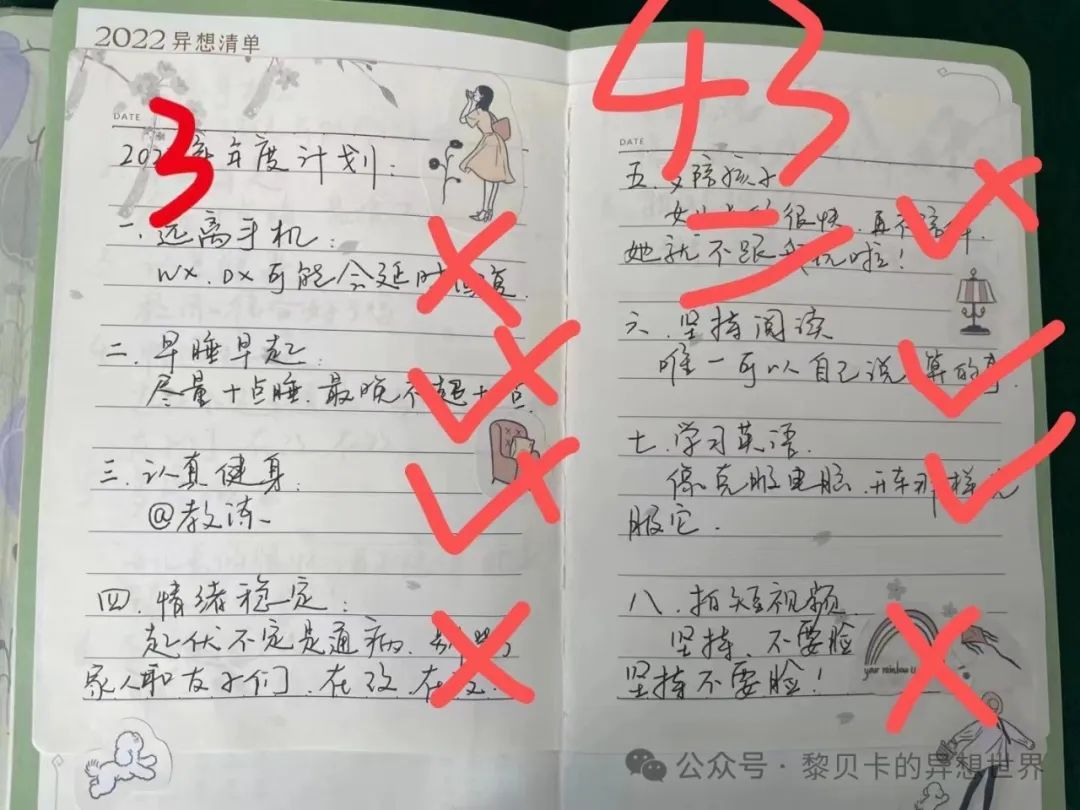 2022异想清单
43
DATE
3
年度计划：
一、远离手机：
WX、DX可能会延时回复
二、早睡早起：
尽量十点睡、最晚不超十点
三、认真健身：
@教练
四、情绪稳定：
起伏不定是通病、
家人和友子们、在改、在改
DATE
五、多陪孩子
很快、再不陪
她就不跟我玩啦！
六、坚持阅读
唯一可以自己说算的事
七、学习英语
像克服电脑、开车那样克
服它、
八、拍短视频
坚持、不要脸
坚持不要脸！
your rainbow
公众号·黎贝卡的异想世界